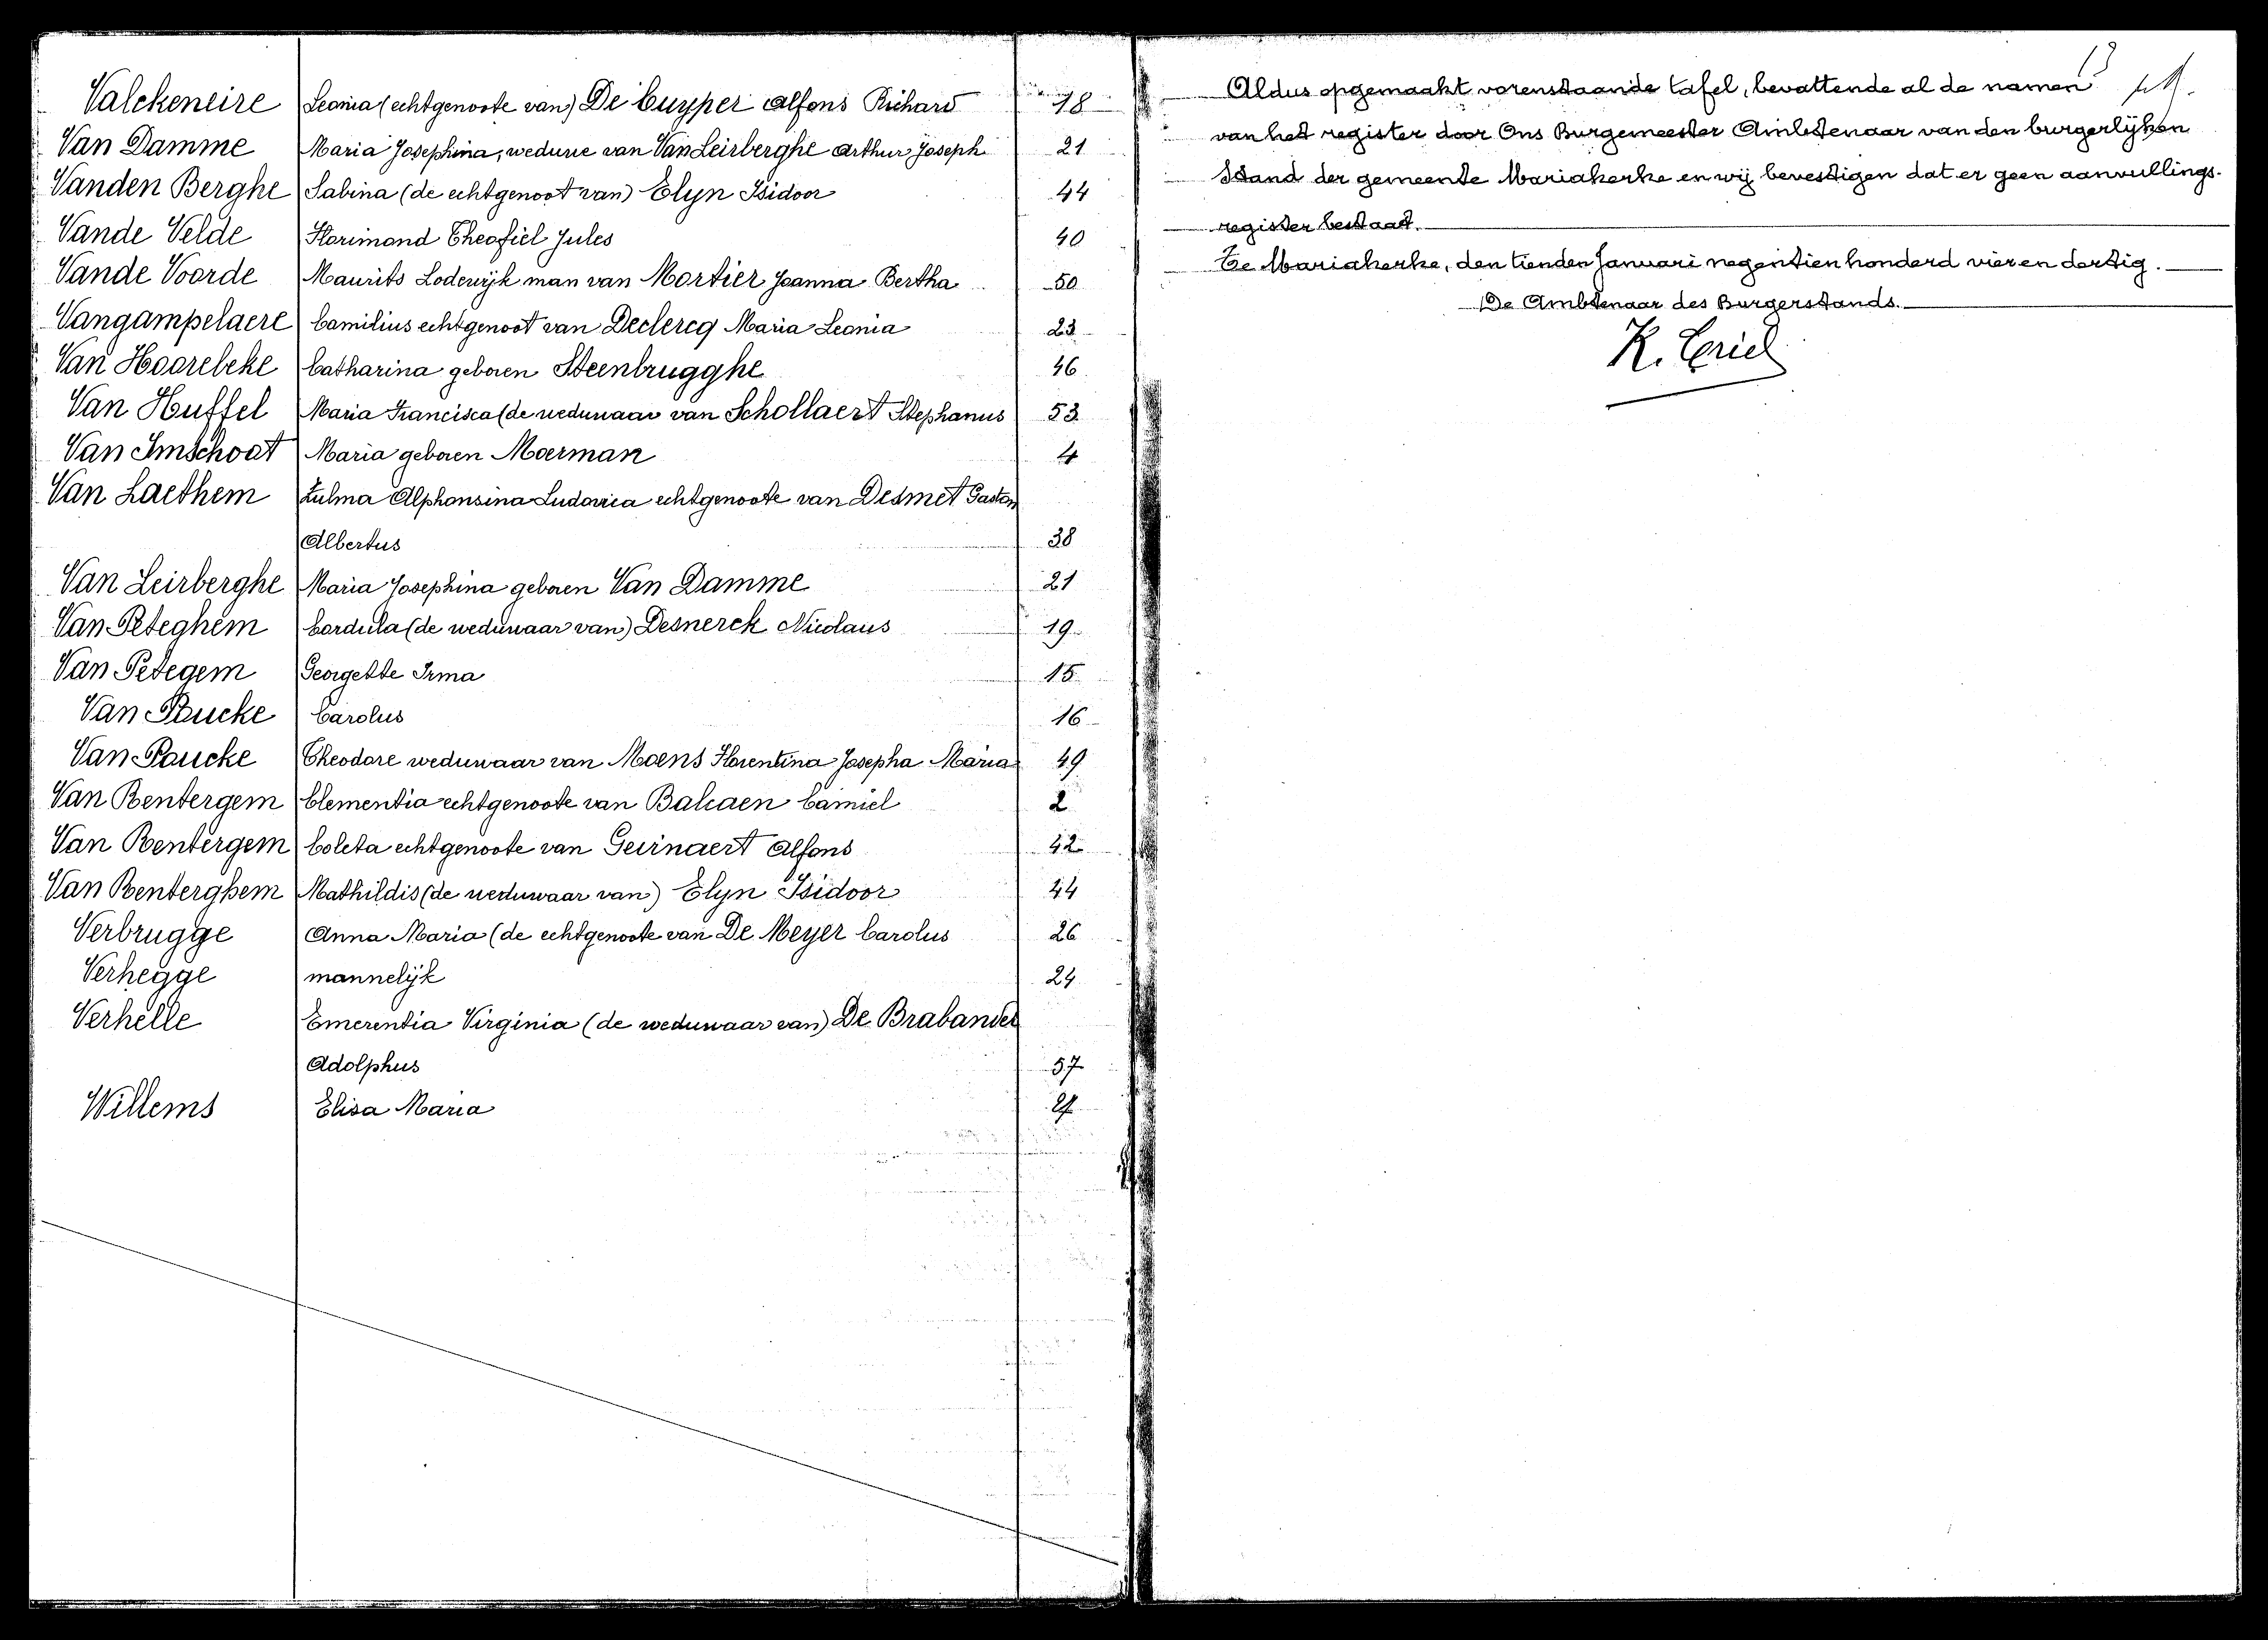 Valckeneire Leonia (echtgenoote van) De Cuyper Alfons Richard 18
Van Damme Maria Josephina, weduwe van Van Leirberghe Arthur Joseph 21
Vanden Berghe Sabina (de echtgenoot van) Elyn Isidoor 44
Vande Velde Florimond Theofiel Jules 40
Vande Voorde Maurits Lodewijk man van Mortier Joanna Bertha 50
Vangampelaere Camilius echtgenoot van Declercq Maria Leonia 23
Van Hoorebeke Catharina geboren Steenbrugghe 46
Van Huffel Maria Francisca (de weduwaar van Schollaert Stephanus 53
Van Imschoot Maria geboren Moerman 4
Van Laethem Zulma Alphonsina Ludovica echtgenoote van Desmet Gaston
Albertus 38
Van Leirberghe Maria Josephina geboren Van Damme 21
Van Peteghem Cordula (de weduwaar van) Desnerck Nicolaus 19
Van Petegem Georgette Irma 15
Van Poucke Carolus 16
Van Poucke Theodore weduwaar van Moens Florentina Josepha Maria 49
Van Rentergem Clementia echtgenoote van Balcaen Camiel 2
Van Rentergem Coleta echtgenoote van Geirnaert Alfons 42
Van Renterghem Mathildis (de weduwaar van) Elyn Isidoor 44
Verbrugge Anna Maria (de echtgenoote van De Meyer Carolus 26
Verhegge mannelijk 24
Verhelle Emerentia Virginia (de weduwaar van) De Brabander
Adolphus 57
Willems Elisa Maria
13
Aldus opgemaakt vorenstaande tafel, bevattende al de namen
van het register door Ons Burgemeester Ambtenaar van den burgerlijken
Stand der gemeente Mariakerke en wij bevestigen dat er geen aanvullings-
register bestaat.
Te Mariakerke, den tienden Januari negentien honderd vier en dertig.
De Ambtenaar des Burgerstands.